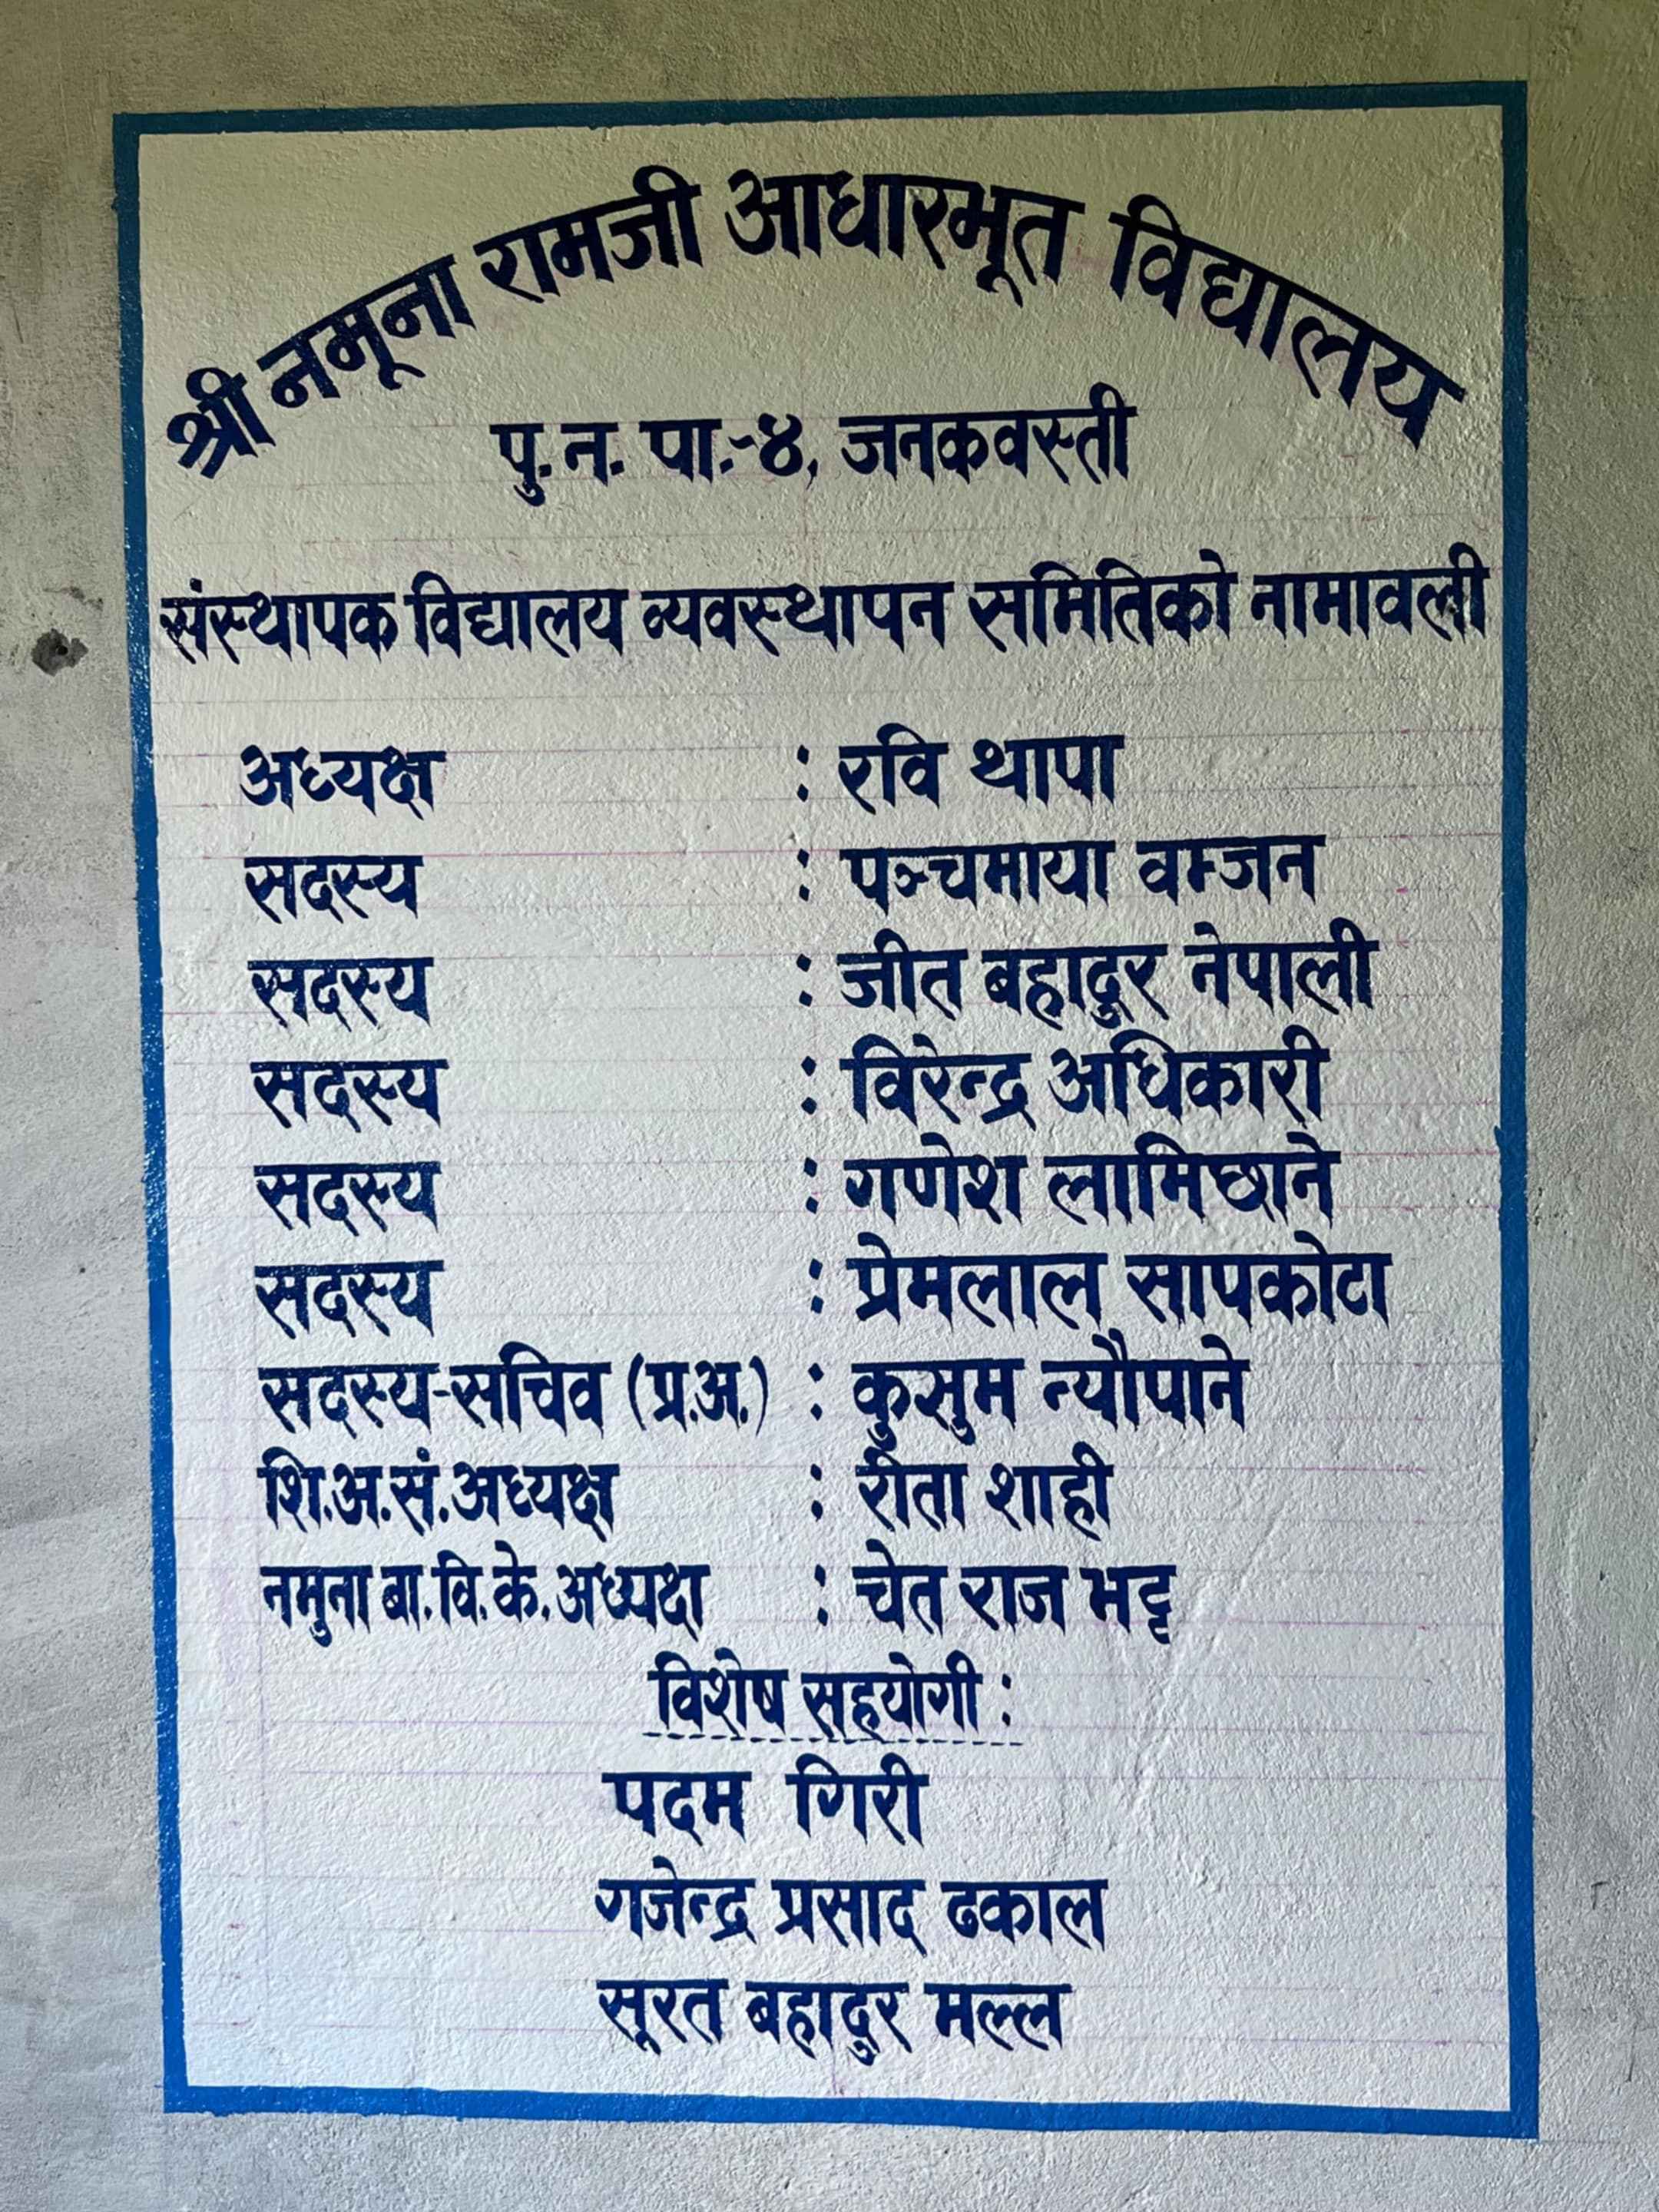 श्री नमूना रामजी आधारभूत विद्यालय
पु. न. पा.-४, जनकवस्ती
संस्थापक विद्यालय व्यवस्थापन समितिको नामावली
अध्यक्ष : रवि थापा
सदस्य : पञ्चमाया वम्जन
सदस्य : जीत बहादुर नेपाली
सदस्य : विरेन्द्र अधिकारी
सदस्य : गणेश लामिछाने
सदस्य : प्रेमलाल सापकोटा
सदस्य-सचिव (प्र.अ.) : कुसुम न्यौपाने
शि.अ.सं.अध्यक्ष : रीता शाही
नमुना बा.वि.के.अध्यक्ष : चेत राज भट्ट
विशेष सहयोगी :
पदम गिरी
गजेन्द्र प्रसाद ढकाल
सूरत बहादुर मल्ल